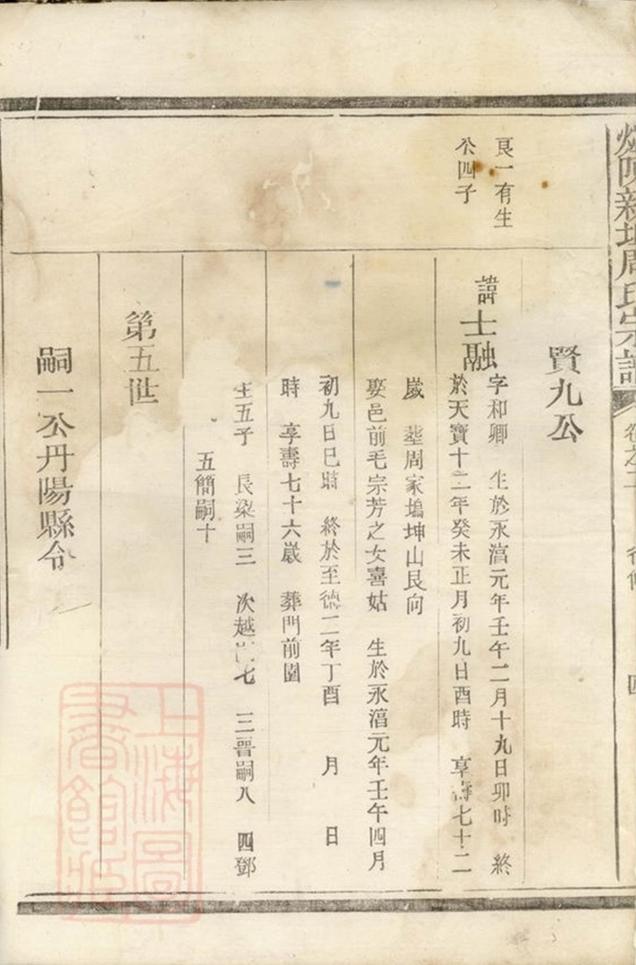 新
周氏宗譜
賢九公
良一有生
公四子
諱士融
字和卿 生於永淍元年壬午二月十九日卯時 終
於天寶十二年癸未正月初九日酉時 享壽七十二
歲 塟周家塢坤山艮向
娶邑前毛宗芳之女喜姑 生於永淍元年壬午四月
初九日巳時 終於至德二年丁酉 月 日
時 享壽七十六歲 葬門前園
生五子 長染嗣三 次越嗣七 三晉嗣八 四鄧
五簡嗣十
第五世
嗣一公丹陽縣令
上海圖書館藏